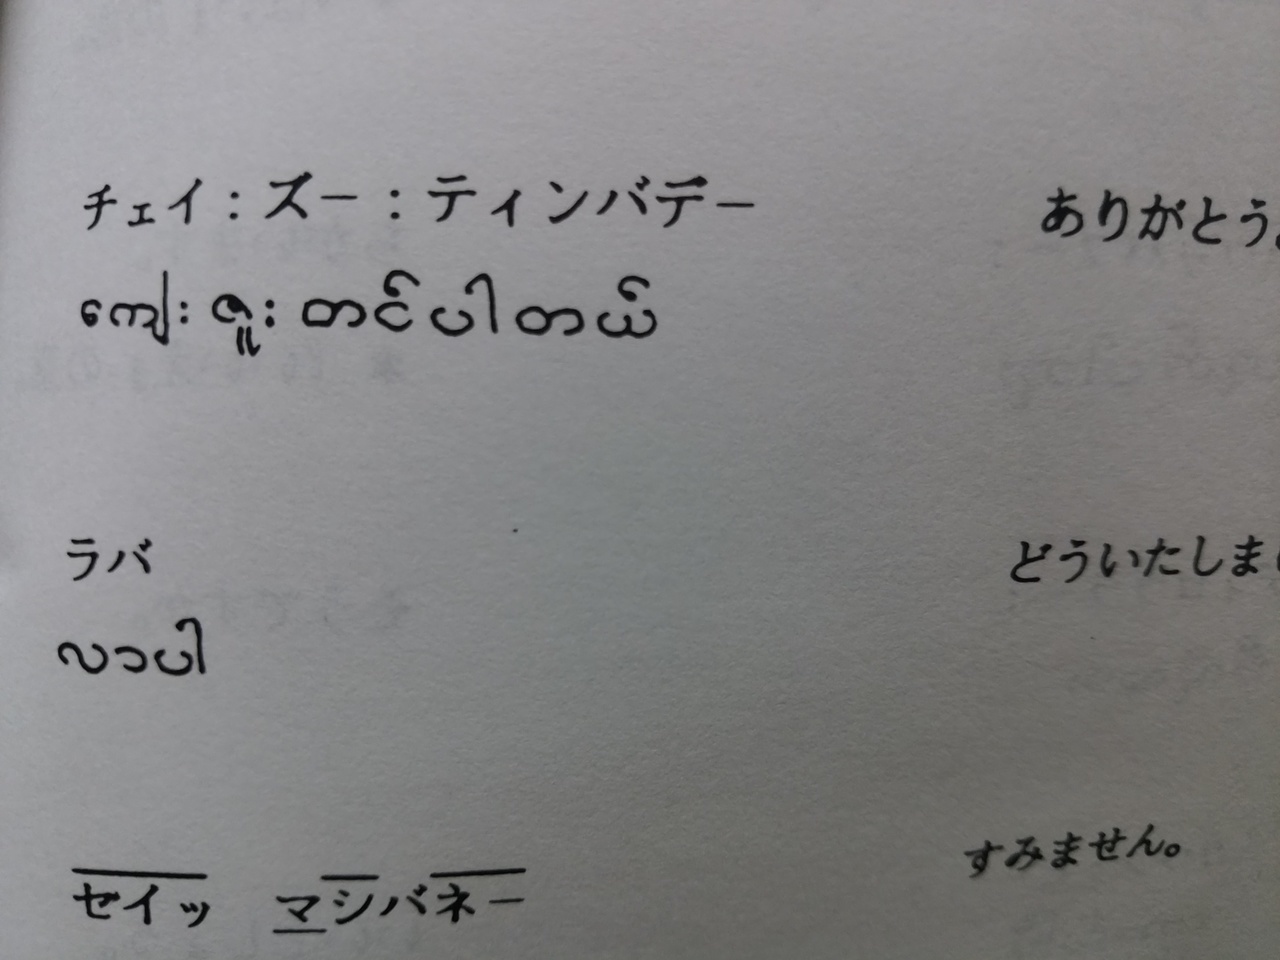 チェイ：ズー：ティンバデー
ありがとう
ကျေးဇူးတင်ပါတယ်
ラバ
どういたしま
လာပါ
セイッ マシバネー
すみません。